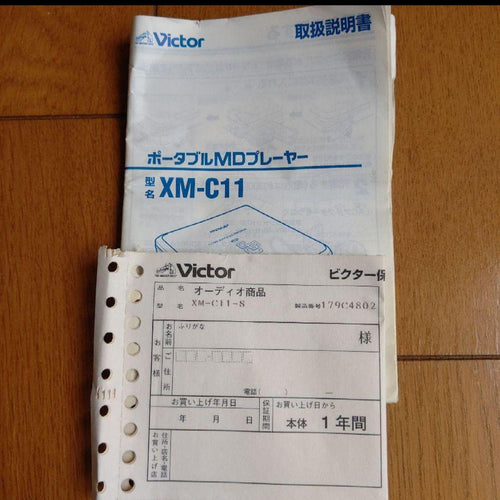 Victor
取扱説明書
ポータブルMDプレーヤー
型名 XM-C11
Victor
ビクター保
品名 オーディオ商品
型名 XM-C11-S 製品番号 179C4802
お客様
ふりがな
お名前 様
ご住所
電話( ) ―
お買い上げ年月日
年 月 日
保証期間
お買い上げ日から
本体 1年間
お買い上げ店
住所・店名・電話